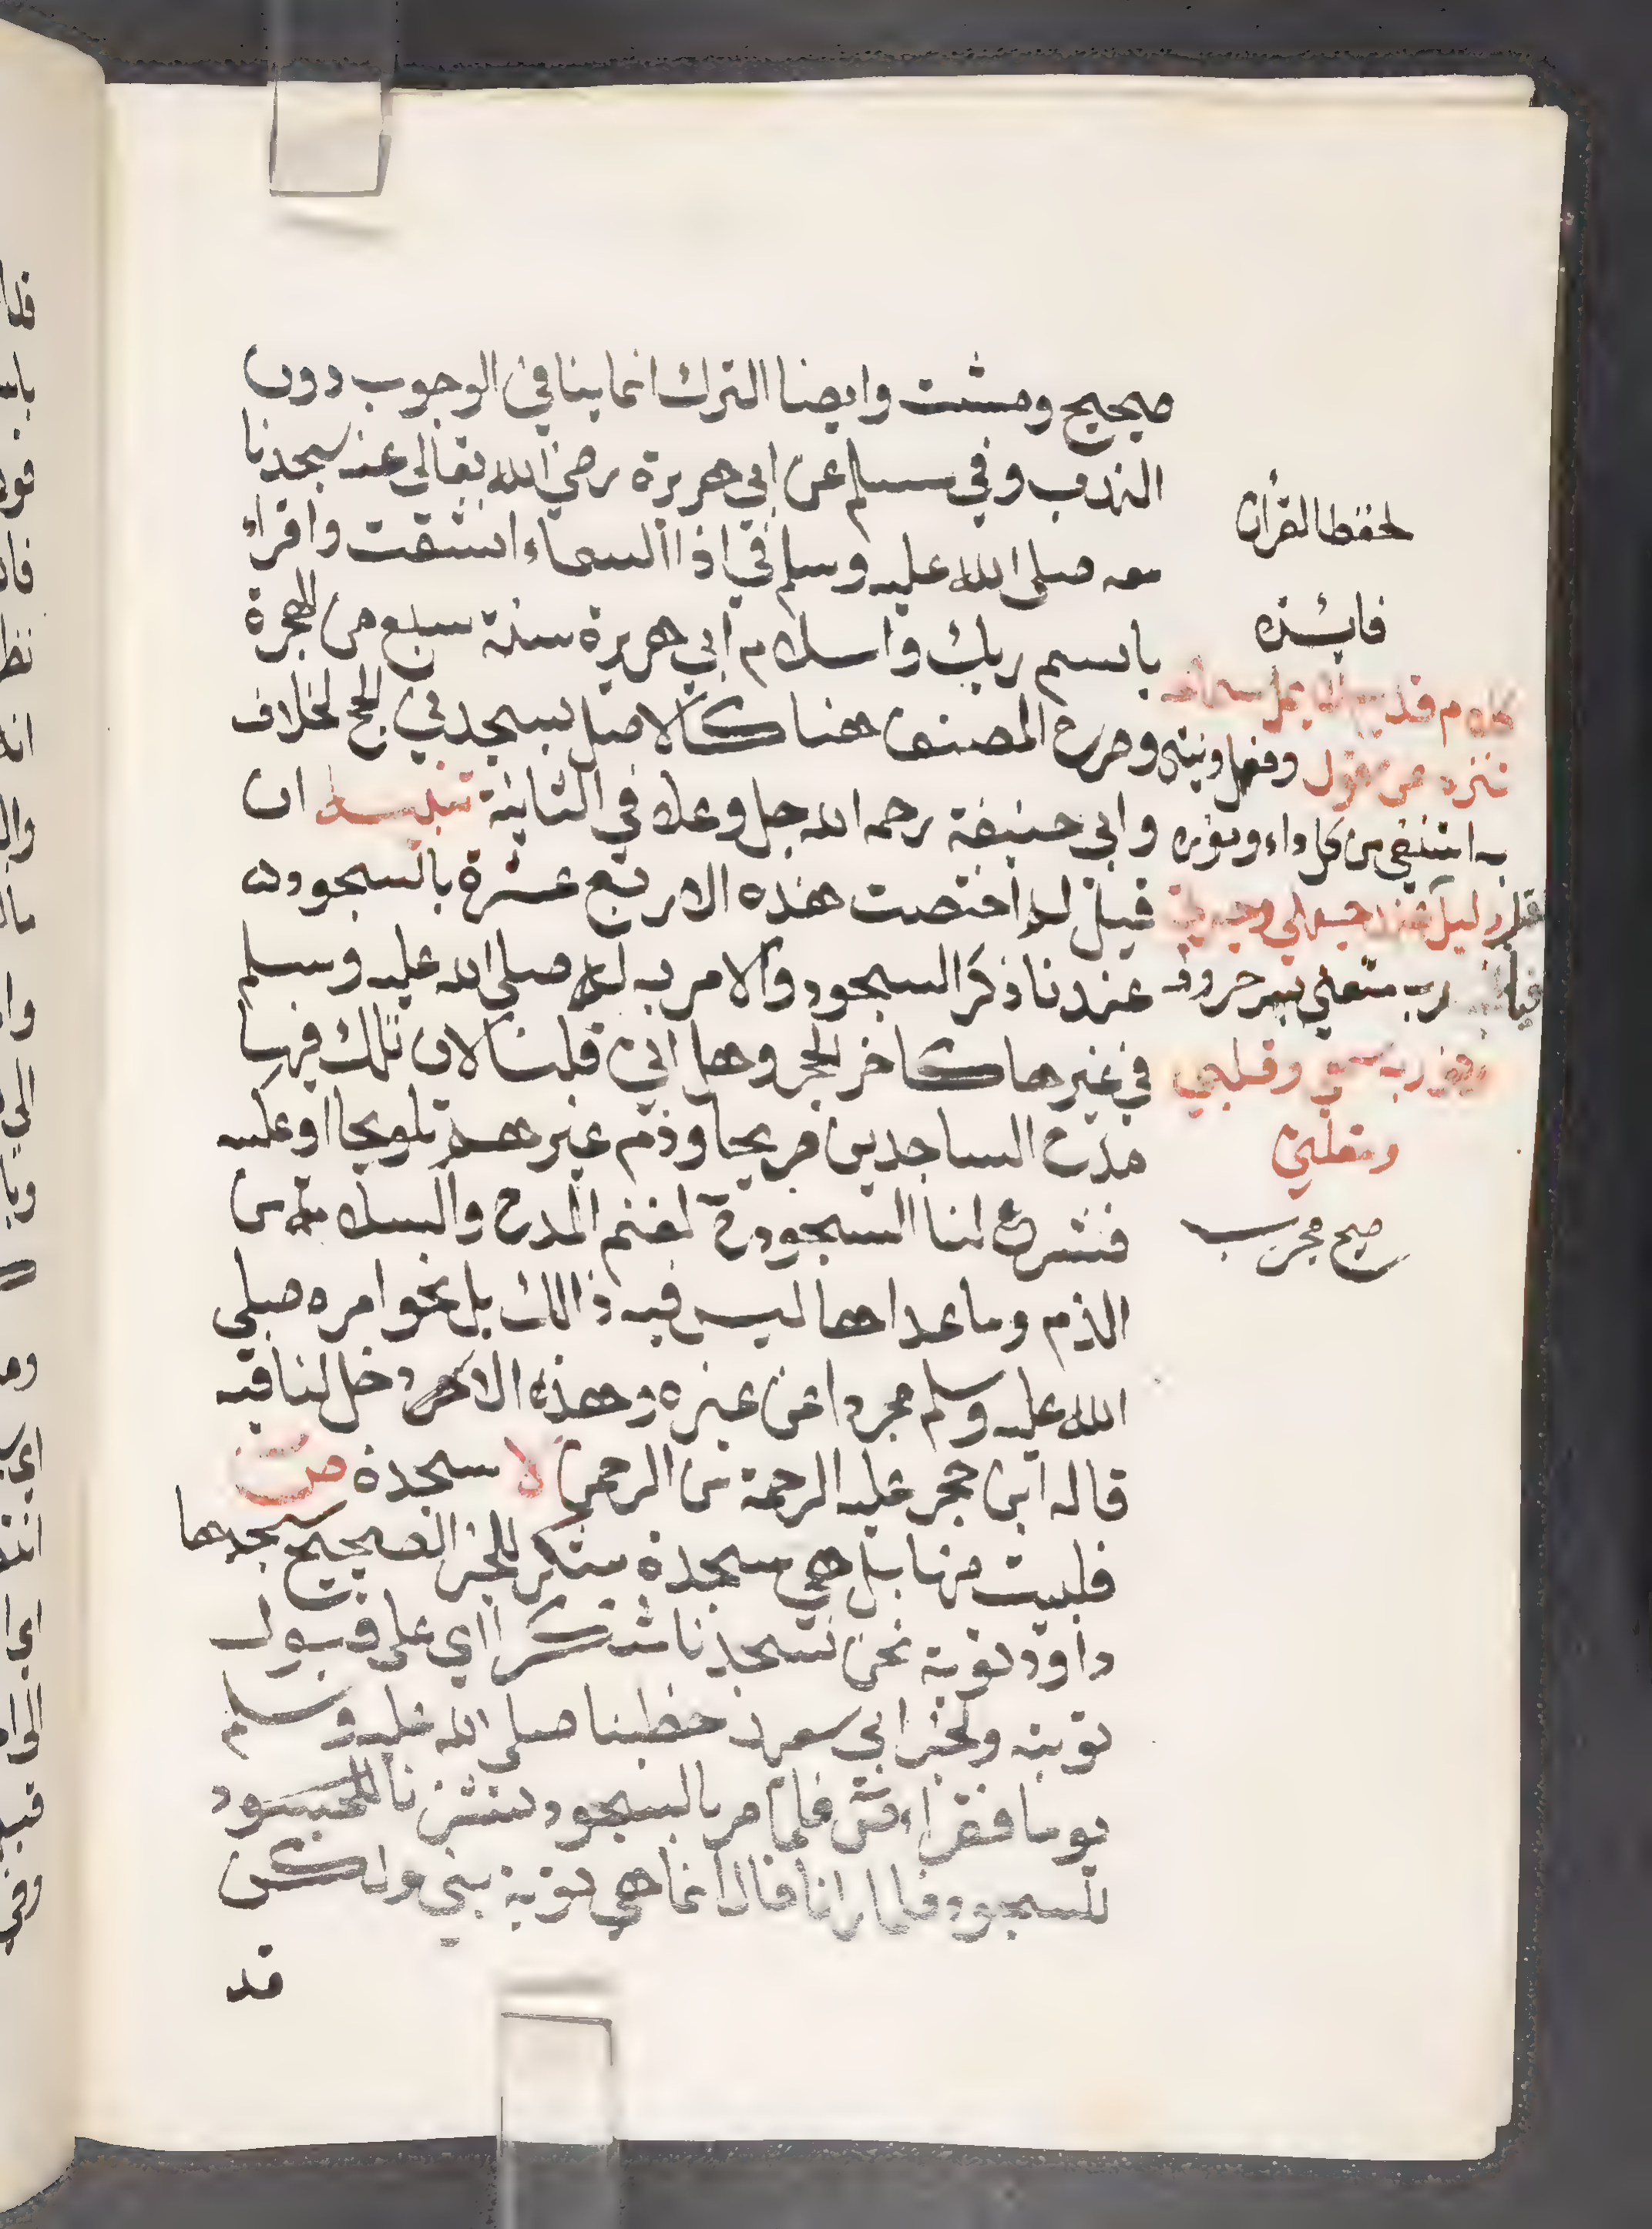 صحيح ومثبت وايضا الترك انما ينافي الوجوب دون
الندب وفي مسلم عن ابي هريرة رضي الله تعالي عنه سجدنا
معه صلى الله عليه وسلم في اذا السماء انشقت واقرا
باسم ربك واسلام ابي هريرة سنة سبع من الهجرة
وصرح المصنف هنا كالاصل بسجدتي الحج لخلاف
وابي حنيفة رحمه الله جل وعلا في الثانية تنبيه ان
قيل لم اختصت هذه الاربع عشرة بالسجود
عندنا ذكر السجود والامر به له صلى الله عليه وسلم
في غيرها كاخر الحجر وهل اتى قلنا لان تلك فيها
مدح الساجدين صريحا وذم غيرهم تلويحا او عكسه
فشرع لنا السجود لغنم المدح والسلامة من
الذم وما عداها ليس فيه ذالك بل نحو امره صلى
الله عليه وسلم مجردا عن غيره وهذه لا دخل لنا فيه
قاله ابن حجر عليه الرحمة من الرحمن لا سجدة ص
فليست منها بل هي سجدة شكر للخبر الصحيح سجدها
داود توبة نحن نسجدنا شكرا اي على قبول
توبته ولخبر ابي سعيد خطبنا صلى الله عليه وسلم
يوما فقراء ص فلما مر بالسجود تشزنا
للسجود فلما رانا قال انما هي توبة نبي ولكن
قد
لحفظ القرأن
فائدة
كلام قديم لا يمل سماعه
تنزه عن قول وفعل ونية
به اشتفي من كل داء ونوره
دليل عند جهلي وحيرتي
رب متعني بسر حروفه
ونور به سمعي وقلبي
ومقلتي
صح مجرب